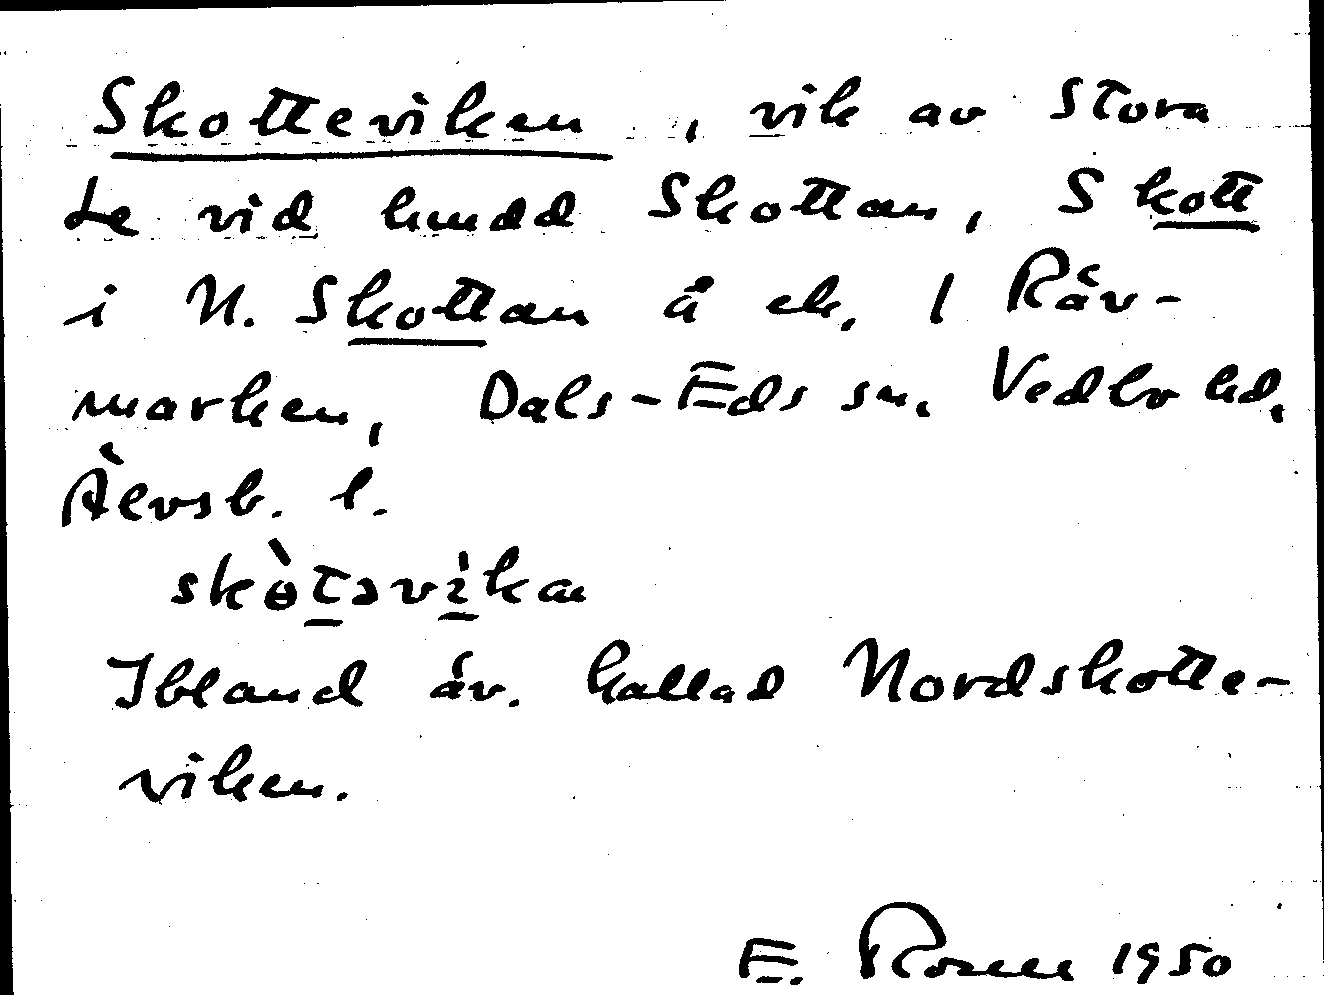 Skotteviken, vik av Stora
Le vid hmdd Skottan, Skott
i N. Skottan å ek. 1 Räv-
marken, Dals-Eds sn. Vedbo hd,
Älvsb. l.
skòtəvìkan
Ibland äv. kallad Nordskotte-
viken.
E. Rosell 1950